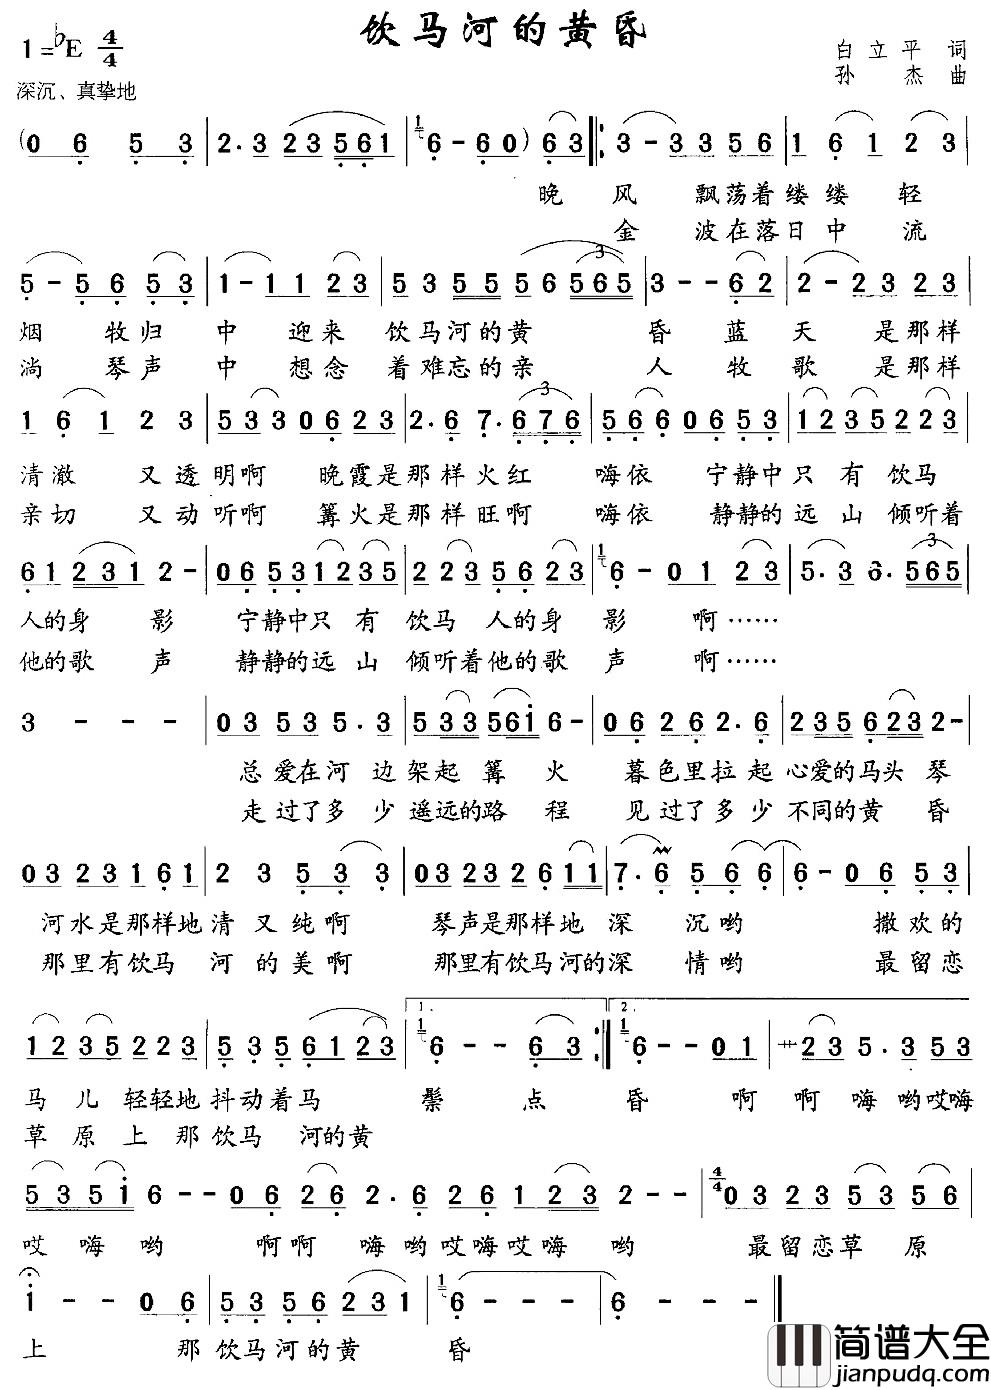 饮马河的黄昏
1=♭E 4/4
白立平 词
孙杰 曲
深沉、真挚地
(0 6 5 3 | 2. 3 2 3 5 6 1 | 6 - 6 0) 6 3 |: 3 - 3 3 5 6 | 1 6 1 2 3 |
晚 风 飘荡着缕缕轻
金 波在落日中流
5 - 5 6 5 3 | 1 - 1 1 2 3 | 5 3 5 5 5 6 5 6 5 | 3 - - 6 2 | 2 - 2 3 2 3 |
烟 牧归 中 迎来 饮马河的黄 昏 蓝 天 是那样
淌 琴声 中 想念 着难忘的亲 人 牧 歌 是那样
1 6 1 2 3 | 5 3 3 0 6 2 3 | 2. 6 7. 6 7 6 | 5 6 6 0 6 5 3 | 1 2 3 5 2 2 3 |
清澈 又透明啊 晚霞是那样火红 嗨依 宁静中只有饮马
亲切 又动听啊 篝火是那样旺啊 嗨依 静静的远山倾听着
6 1 2 3 1 2 - | 0 6 5 3 1 2 3 5 | 2 2 3 5 6 2 3 | 6 - 0 1 2 3 | 5. 3 6. 5 6 5 |
人的身 影 宁静中只有 饮马 人的身 影 啊……
他的歌 声 静静的远山 倾听着他的歌 声 啊……
3 - - - | 0 3 5 3 5. 3 | 5 3 3 5 6 1 6 - | 0 6 2 6 2. 6 | 2 3 5 6 2 3 2 - |
总爱在河 边架起篝 火 暮色里拉起心爱的马头琴
走过了多少遥远的路 程 见过了多少不同的黄 昏
0 3 2 3 1 6 1 | 2 3 5 3 3 | 0 3 2 3 2 6 1 1 | 7. 6 5 6 6 | 6 - 0 6 5 3 |
河水是那样地清又纯啊 琴声是那样地深 沉哟 撒欢的
那里有饮马 河的美啊 那里有饮马河的深 情哟 最留恋
1 2 3 5 2 2 3 | 5 3 5 6 1 2 3 | 1. 6 - - 6 3 :| 2. 6 - - 0 1 | 2 3 5. 3 5 3
马儿轻轻地抖动着马 鬃 点 昏 啊 啊嗨哟哎嗨
草原上那饮马 河的黄
5 3 5 1 6 - - 0 6 2 6 2. 6 2 6 1 2 3 2 - - | 4/4 0 3 2 3 5 3 5 6 |
哎嗨哟 啊啊嗨哟哎嗨哎嗨哟 最留恋草原
1 - - 0 6 | 5 3 5 6 2 3 1 | 6 - - - | 6 - - ‖
上 那饮马河的黄 昏
简谱大全
jianpudq.com